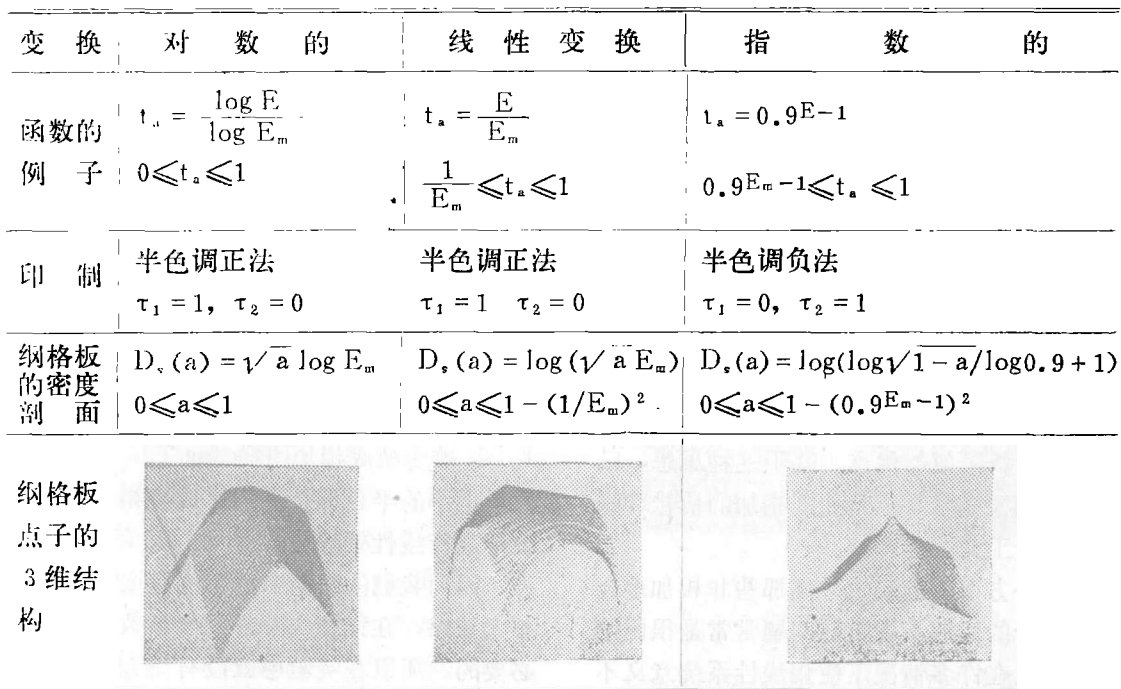 变 换 对 数 的 线 性 变 换 指 数 的
函数的
例 子
tₐ = log E / log Eₘ
0≤tₐ≤1
tₐ = E / Eₘ
1/Eₘ ≤tₐ≤1
tₐ = 0.9^{E-1}
0.9^{Eₘ-1}≤tₐ≤1
印 制
半色调正法
τ₁ = 1, τ₂ = 0
半色调正法
τ₁ = 1 τ₂ = 0
半色调负法
τ₁ = 0, τ₂ = 1
纲格板
的密度
剖 面
Dₛ(a) = √a log Eₘ
0≤a≤1
Dₛ(a) = log(√a Eₘ)
0≤a≤1 − (1/Eₘ)²
Dₛ(a) = log(log√1−a/log0.9 + 1)
0≤a≤1 − (0.9^{Eₘ-1})²
纲格板
点子的
3 维结
构